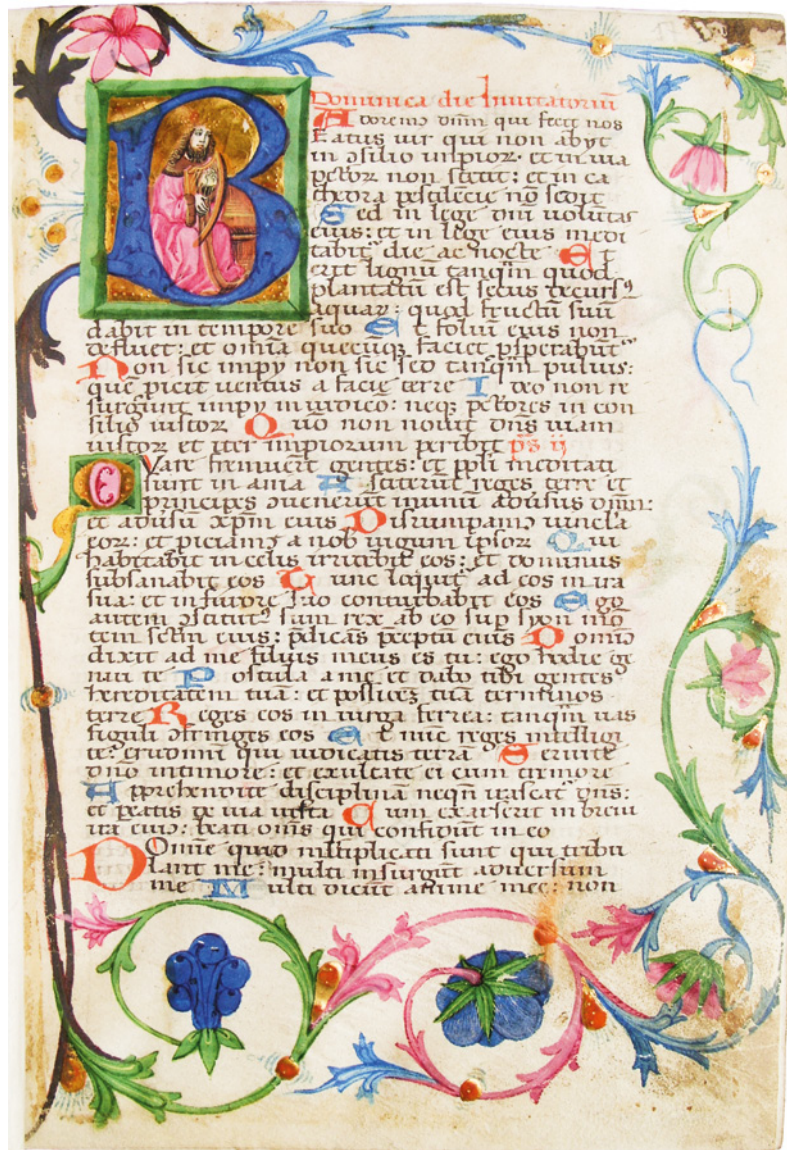 Dominica die Invitatoriū
Adoremꝰ dnm̄ qui fecit nos
Eatus uir qui non abyt
in ↄsilio impioꝝ· et in uia
petoꝝ non stetit: et in ca
thedra pestilēcie nō sedit
Sed in lege dn̄i uolūtas
eius: et in lege eius medi
tabit᷑ die ac nocte Et
erit lignū tanqm̄ quod
plantatū est secus decursꝰ
aquaꝝ: quod fructū suū
dabit in tempore suo Et foliū eius non
defluet: et omīa quecūqꝫ faciet psperabūt᷑
Non sic impy non sic sed tanqm̄ puluis:
quē picit uentus a facie terre Ideo non re
surgunt impy in iudicō: neqꝫ petores in con
silio iustoꝝ Quō non nouit dn̄s uiam
iustoꝝ et iter impiorum peribit ps̄ ij
Vare fremuerūt gentes: et ppli meditati
sunt in ania Astiterūt reges terre et
principes ↄuenerūt inunū aduersus dnm̄:
et aduersū xpm̄ eius Disrumpamꝰ uincla
eoꝝ: et piciamꝰ a nob iugum ipsoꝝ Qui
habitabit in celis irridebit eos: et dominus
subsanabit eos Tunc loquet᷑ ad eos in ira
sua: et in furore suo conturbabit eos Ego
autem ↄstitutꝰ sum rex ab eo sup syon mō
tem sctm̄ eius: p̄dicās p̄ceptū eius Dominꝰ
dixit ad me filius meus es tu: ego hodie ge
nui te Postula a me et dabo tibi gentes
hereditatem tuā: et possessiōeꝫ tuā terminos
terre Reges eos in uirga ferrea: tanqm̄ uas
figuli ↄfringes eos Et nūc reges intelligi
te: erudimini qui iudicatis terrā Seruite
dn̄o intimore: et exultate ei cum tremore
Apprehendite disciplinā nequn̄ irascat᷑ dn̄s:
et peatis de uia iusta Cum exarserit in breui
ira eiuꝰ: beati om̄s qui confidūt in eo
Domine quid multiplicati sunt qui tribu
lant me: multi insurgūt aduersum
me Multi dicūt anime mee: non